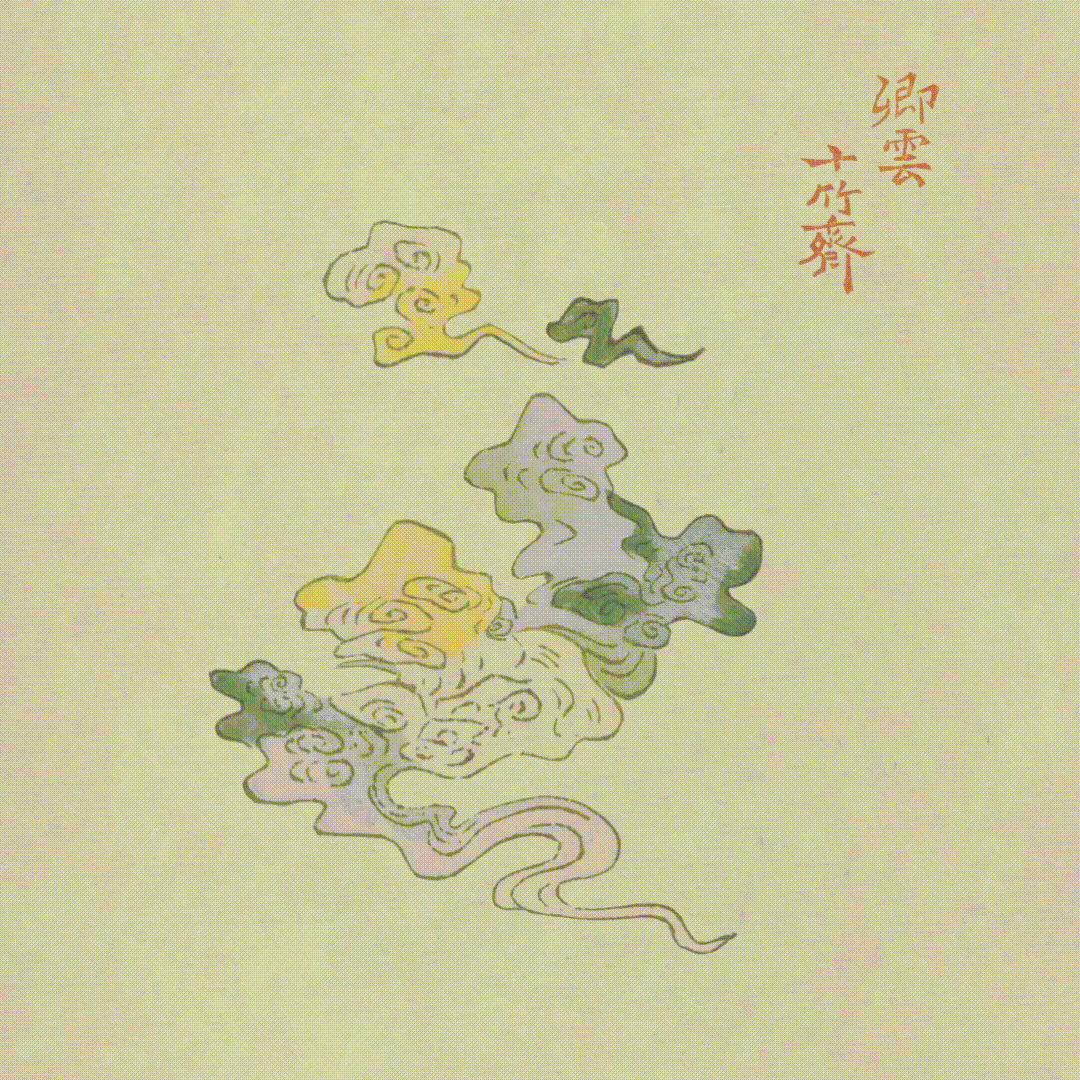 卿雲
十竹齋